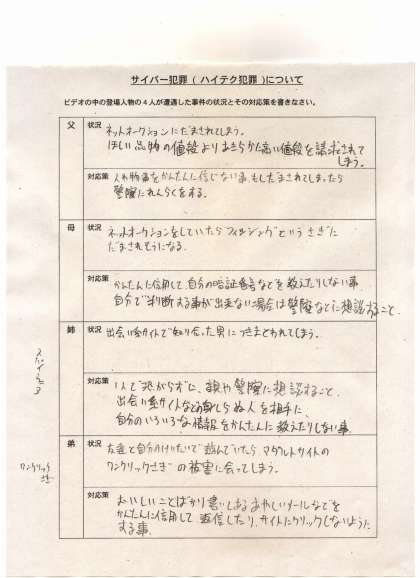 サイバー犯罪 ( ハイテク犯罪 )について
ビデオの中の登場人物の4人が遭遇した事件の状況とその対応策を書きなさい。
父 状況 ネットオークションにだまされてしまう。
ほしい品物の値段よりあきらか高い値段を請求されて
しまう。
対応策 人や物事をかんたんに信じない事。もしだまされてしまったら
警察にれんらくをする。
母 状況 ネットオークションをしていたらフィッシングという さぎに
だまされそうになる。
対応策 かんたんに信用して自分の暗証番号などを教えたりしない事
自分で判断する事が出来ない場合は警察などに相談すること。
姉 状況 出会い系サイトで知り合った男につきまとわれてしまう。
対応策 1人で恐がらずに、親や警察に相談すること、
出会い系サイトなどの見しらぬ人を相手に
自分のいろいろな情報をかんたんに教えたりしない事
弟 状況 友達と自分のけいたいで遊んでいたら アダルトサイトの
ワンクリックさぎの被害に会ってしまう。
対応策 おいしいことばかり書いてあるあやしいメールなどを
かんたんに信用して返信したり、サイトにクリックしないように
する事
ワンクリック
さぎ